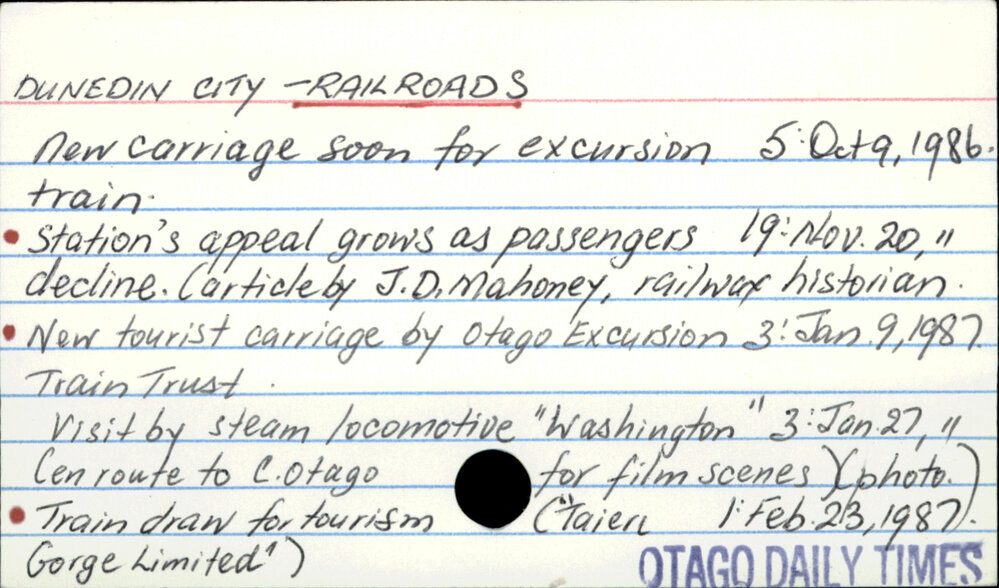 DUNEDIN CITY - RAILROADS
New carriage soon for excursion 5: Oct 9, 1986.
train.
• Station's appeal grows as passengers 19: Nov. 20, "
decline. (article by J.D. Mahoney, railway historian.
• New tourist carriage by Otago Excursion 3: Jan. 9, 1987.
Train Trust.
Visit by steam locomotive "Washington" 3: Jan. 27, "
(en route to C. Otago for film scenes) (photo.)
• Train draw for tourism ("Taieri 1: Feb. 23, 1987).
Gorge Limited")
OTAGO DAILY TIMES